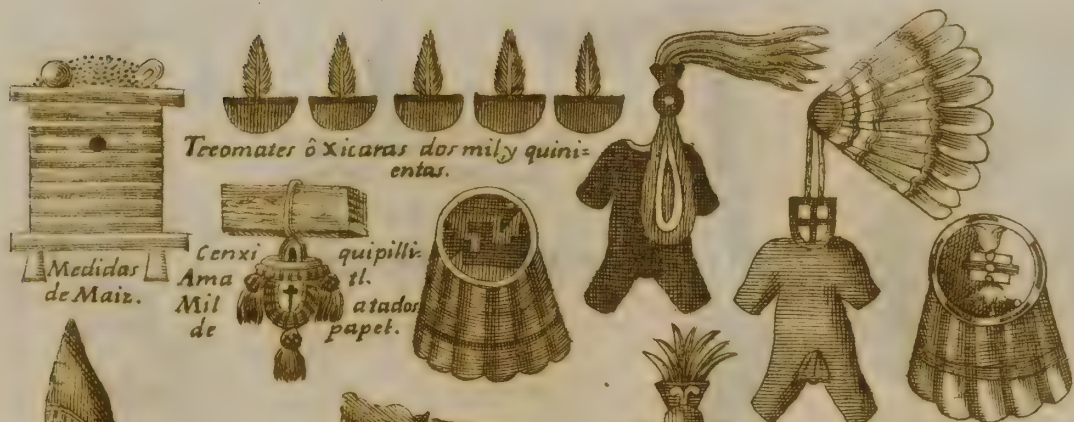 Tecomates ô xicaras dos mil, y quini=
entas.
Medidas
de Maiz.
Cenxi quipilli
Ama tl.
Mil atados
de papel.